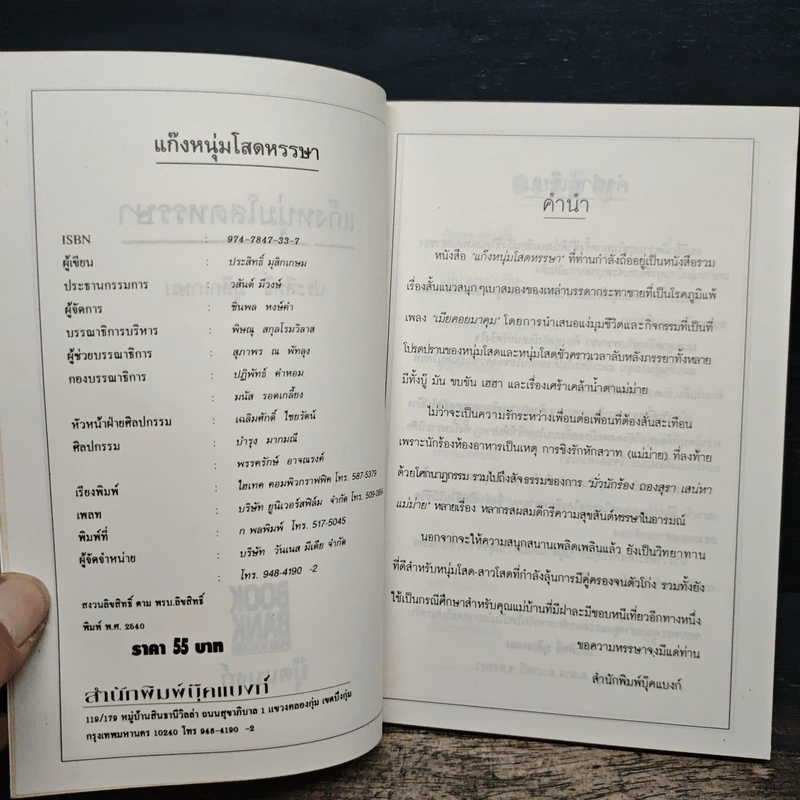 แก๊งหนุ่มโสดหรรษา
ISBN : 974-7847-33-7
ผู้เขียน : ประสิทธิ์ มุสิกเกษม
ประธานกรรมการ : วสันต์ มีวงษ์
ผู้จัดการ : ชินพล หงษ์คำ
บรรณาธิการบริหาร : พิษณุ สกุลโรมวิลาส
ผู้ช่วยบรรณาธิการ : สุภาพร ณ พัทลุง
กองบรรณาธิการ : ปฏิพัทธ์ คำหอม
มนัส รอดเกลี้ยง
หัวหน้าฝ่ายศิลปกรรม : เฉลิมศักดิ์ ไชยรัตน์
ศิลปกรรม : บำรุง มากมณี
พรรครักษ์ อาจณรงค์
เรียงพิมพ์ : ไฮเทค คอมพิวกราฟฟิค โทร. 587-5379
เพลท : บริษัท ยูนิเวอร์สฟิล์ม จำกัด โทร.
พิมพ์ที่ : ก พลพิมพ์ โทร. 517-5045
ผู้จัดจำหน่าย : บริษัท วันเนส มีเดีย จำกัด
: โทร. 948-4190 -2
สงวนลิขสิทธิ์ ตาม พรบ.ลิขสิทธิ์
พิมพ์ พ.ศ. 2540
ราคา 55 บาท
สำนักพิมพ์บุ๊คแบงก์
119/179 หมู่บ้านสินธานีวิลล่า ถนนสุขาภิบาล 1 แขวงคลองกุ่ม เขตบึงกุ่ม
กรุงเทพมหานคร 10240 โทร 948-4190 -2
คำนำ
หนังสือ "แก๊งหนุ่มโสดหรรษา" ที่ท่านกำลังถืออยู่เป็นหนังสือรวม
เรื่องสั้นแนวสนุกๆเบาสมองของเหล่าบรรดากระทาชายที่เป็นโรคภูมิแพ้
เพลง "เมียคอยมาคุม" โดยการนำเสนอแง่มุมชีวิตและกิจกรรมที่เป็นที่
โปรดปรานของหนุ่มโสดและหนุ่มโสดชั่วคราวเวลาลับหลังภรรยาทั้งหลาย
มีทั้งบู๊ มัน ขบขัน เฮฮา และเรื่องเศร้าเคล้าน้ำตาแม่ม่าย
ไม่ว่าจะเป็นความรักระหว่างเพื่อนต่อเพื่อนที่ต้องสั่นสะเทือน
เพราะนักร้องห้องอาหารเป็นเหตุ การชิงรักหักสวาท (แม่ม่าย) ที่ลงท้าย
ด้วยโศกนาฏกรรม รวมไปถึงสัจธรรมของการ "มั่วนักร้อง ดองสุรา เสน่หา
แม่ม่าย" หลายเรื่อง หลากรสผสมดีกรีความสุขสันต์หรรษาในอารมณ์
นอกจากจะให้ความสนุกสนานเพลิดเพลินแล้ว ยังเป็นวิทยาทาน
ที่ดีสำหรับหนุ่มโสด-สาวโสดที่กำลังลุ้นการมีคู่ครองจนตัวโก่ง รวมทั้งยัง
ใช้เป็นกรณีศึกษาสำหรับคุณแม่บ้านที่มีฝาละมีชอบหนีเที่ยวอีกทางหนึ่ง
ขอความหรรษาจงมีแด่ท่าน
สำนักพิมพ์บุ๊คแบงก์